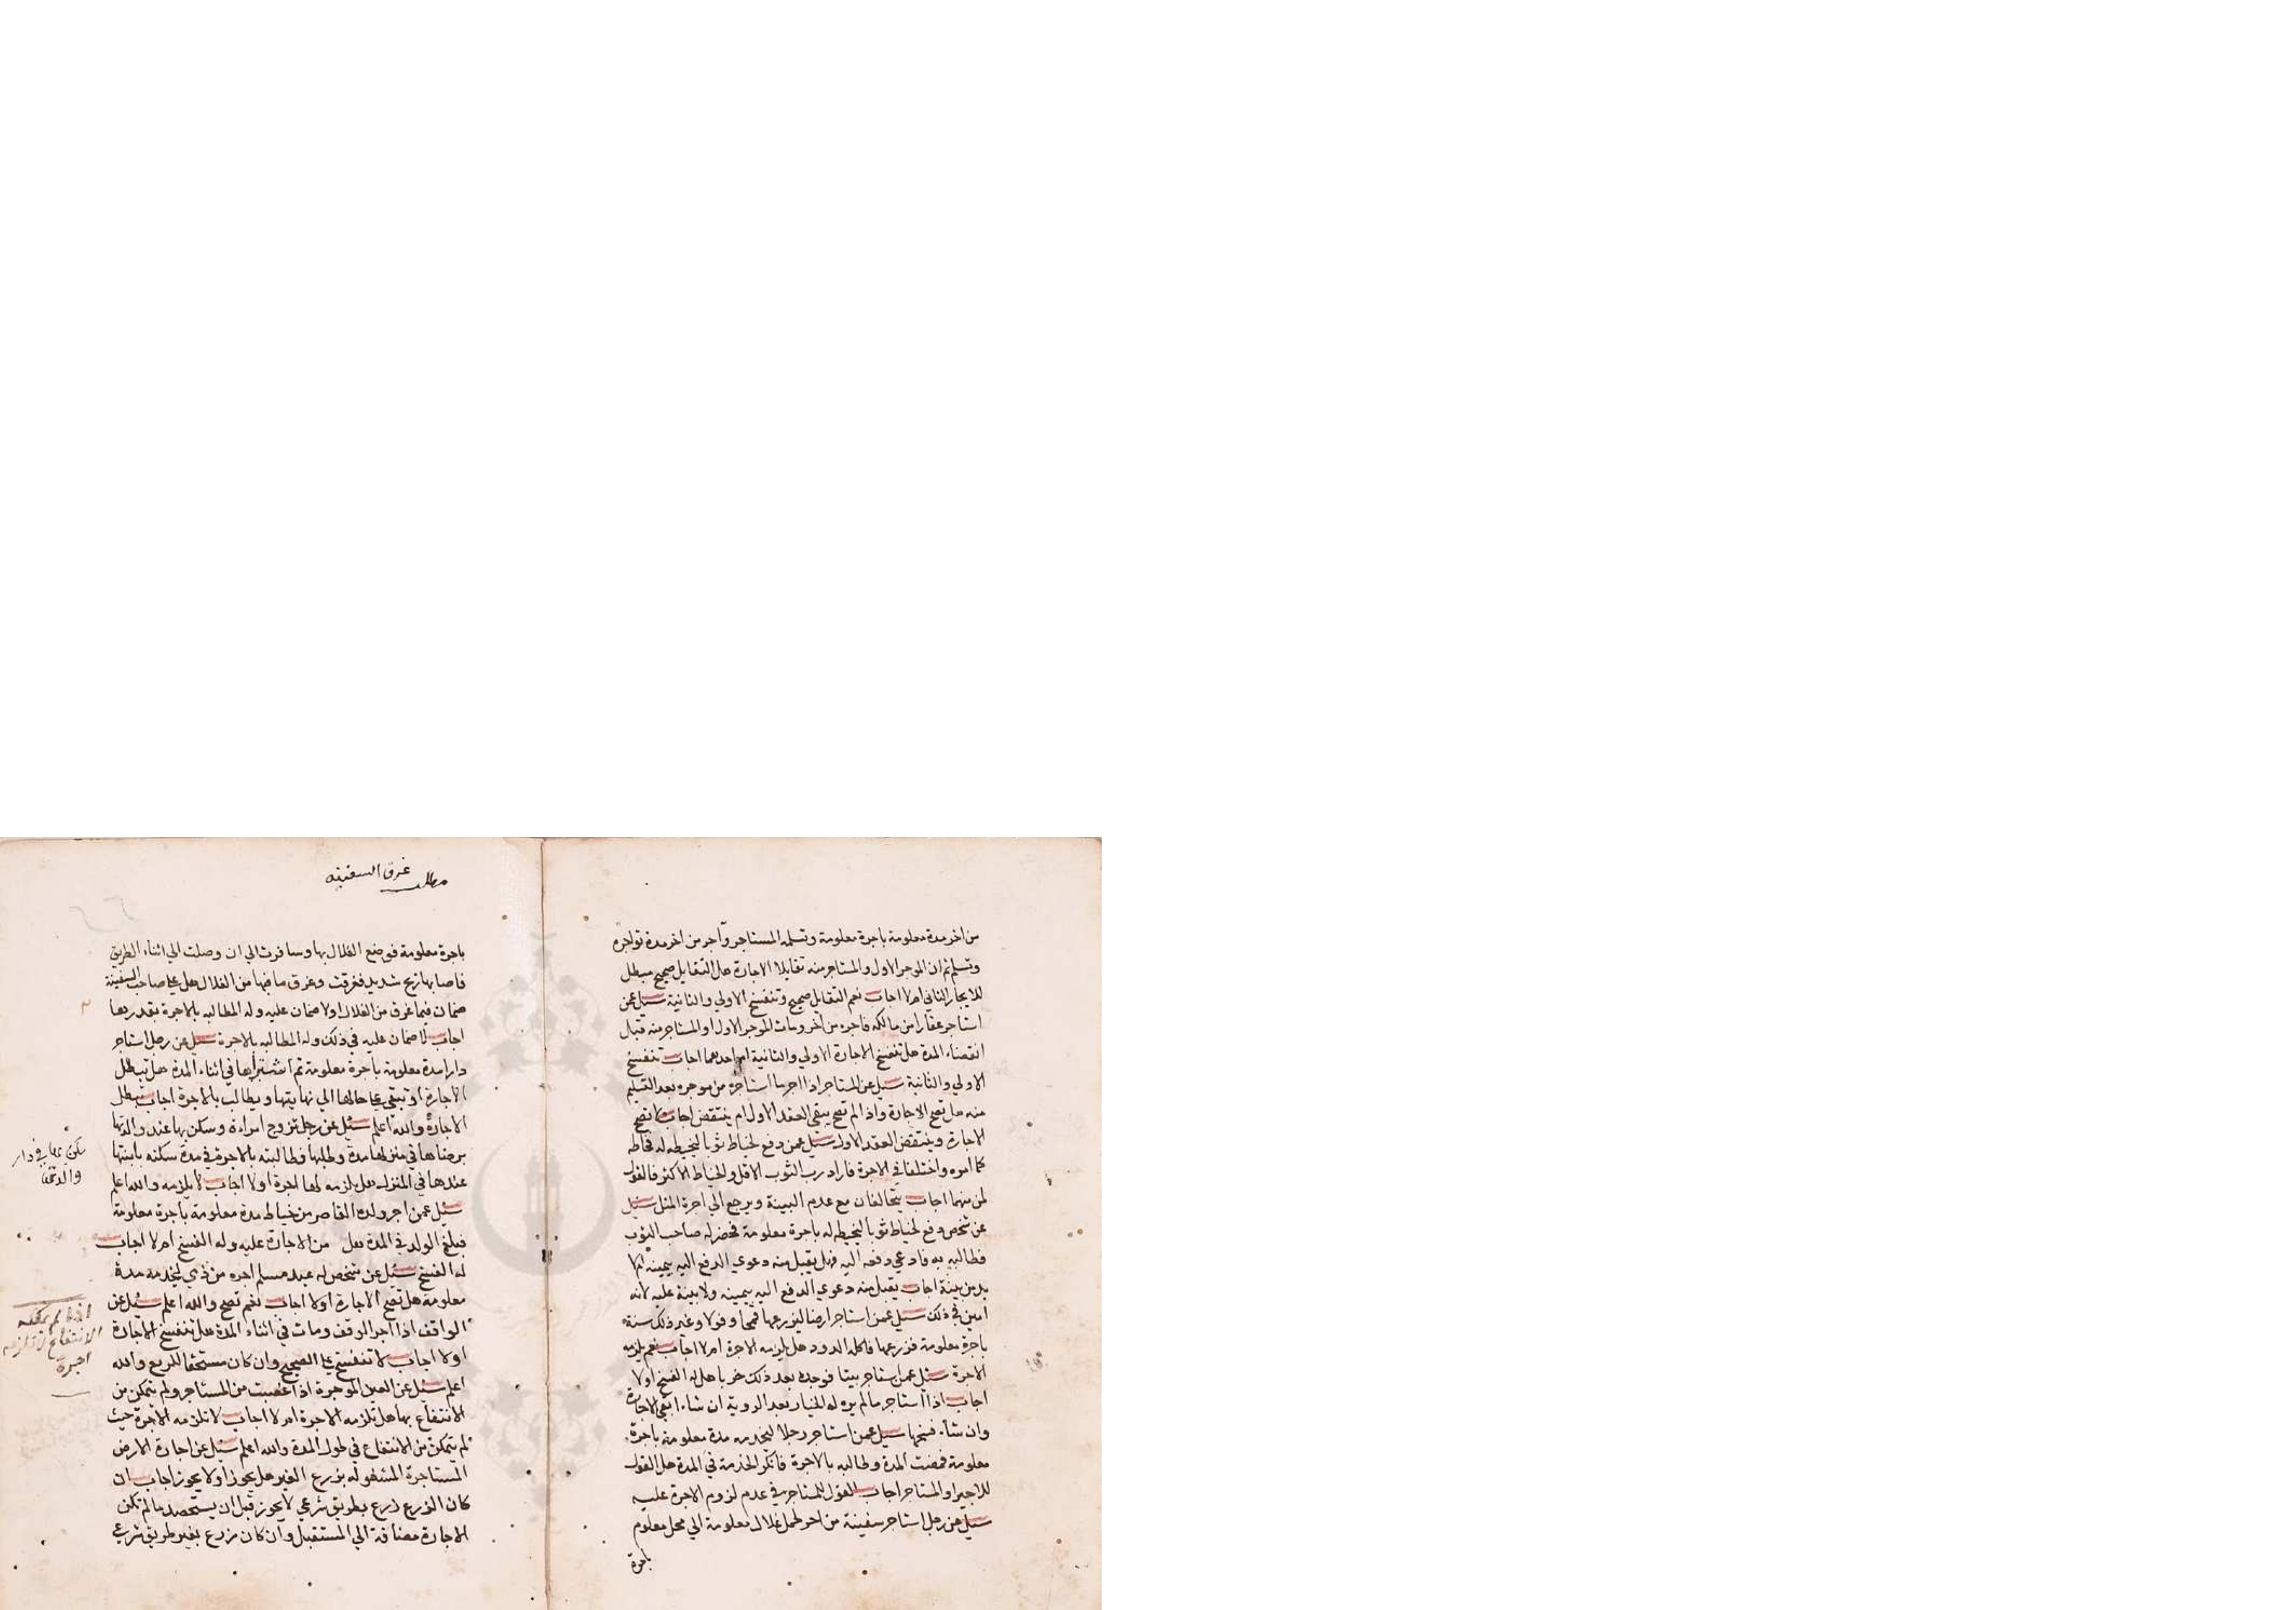 من اخر مدة معلومة باجرة معلومة وتسلمه المستاجر وآجر من اخر مدة تواجره
وتسلم ثم ان الموجر الاول والمستاجر منه تقايلا الاجارة هل التقايل صحيح مبطل
للايجار الثاني ام لا اجاب نعم التقايل صحيح وتنفسخ الاولي والثانية سئل عمن
استاجر عقارا من مالكه فاجره من اخر ومات الموجر الاول او المستاجر منه قبل
انقضاء المدة هل تنفسخ الاجارة الاولي والثانية ام احدهما اجاب تنفسخ
الاولي والثانية سئل عن المستاجر اذا اجر ما استاجره من موجره بعد التسليم
منه هل تصح الاجارة واذا لم تصح يبقي العقد الاول ام ينتقض اجاب لا تصح
الاجارة وينتقض العقد الاول سئل عمن دفع لخياط ثوبا ليخيطه له فخاطه
كما امره واختلفا في الاجرة فاراد رب الثوب الاقل والخياط الاكثر فالقول
لمن منهما اجاب يتحالفان مع عدم البينة ويرجع الي اجرة المثل سئل
عن شخص دفع لخياط ثوبا ليخيطه له باجرة معلومة فحضر له صاحب الثوب
فطالبه به فادعي دفعه اليه فهل يقبل منه دعوي الدفع اليه بيمينه ام لا
بد من بينة اجاب يقبل منه دعوي الدفع اليه بيمينه ولا بينة عليه لانه
امين في ذلك سئل عمن استاجر ارضا ليزرعها قمحا وفولا وغير ذلك سنة
باجرة معلومة فزرعها فاكله الدود هل يلزمه الاجرة ام لا اجاب نعم يلزمه
الاجرة سئل عمن استاجر بيتا فوجده بعد ذلك خرابا هل له الفسخ اولا
اجاب اذا استاجر ما لم يره له الخيار بعد الروية ان شاء ابقي الاجارة
وان شاء فسخها سئل عمن استاجر رجلا ليخدمه مدة معلومة باجرة
معلومة فمضت المدة وطالبه بالاجرة فانكر الخدمة في المدة هل القول
للاجير او المستاجر اجاب القول للمستاجر في عدم لزوم الاجرة عليه
سئل عن رجل استاجر سفينة من اخر لحمل غلال معلومة الي محل معلوم
باجرة
مطلب غرق السفينه
باجرة معلومة فوضع الغلال بها وسافرت الي ان وصلت الي اثناء الطريق
فاصابها ريح شديد فغرقت وغرق ما فيها من الغلال هل علي صاحب السفينة
ضمان فيما غرق من الغلال اولا ضمان عليه وله المطالبه بالاجرة بقدرها
اجاب لا ضمان عليه في ذلك وله المطالبه بالاجرة سئل عن رجل استاجر
دارا مدة معلومة باجرة معلومة ثم اشتراها في اثناء المدة هل تبطل
الاجارة او تبقي علي حالها الي نهايتها ويطالب بالاجرة اجاب تبطل
الاجارة والله اعلم سئل عن رجل تزوج امراءة وسكن بها عند والدتها
برضاها في منزلها مدة وطلبها فطالبته بالاجرة في مدة سكنه بابنتها
عندها في المنزل هل يلزمه لها اجرة اولا اجاب لا يلزمه والله اعلم
سئل عمن اجر ولده القاصر من خياط مدة معلومة باجرة معلومة
فبلغ الولد في المدة هل من الاجارة عليه وله الفسخ ام لا اجاب
له الفسخ سئل عن شخص له عبد مسلم اجره من ذي ليخدمه مدة
معلومة هل تصح الاجارة اولا اجاب نعم تصح والله اعلم سئل عن
الواقف اذا اجر الوقف ومات في اثناء المدة هل تنفسخ الاجارة
اولا اجاب لا تنفسخ علي الصحيح وان كان مستحقا للريع والله
اعلم سئل عن العين الموجرة اذا غصبت من المستاجر ولم يتمكن من
الانتفاع بها هل تلزمه الاجرة ام لا اجاب لا تلزمه الاجرة حيث
لم يتمكن من الانتفاع في طول المدة والله اعلم سئل عن اجارة الارض
المستاجرة المشغوله بزرع الغير هل يجوز اولا يجوز اجاب ان
كان الزرع زرع بطريق شرعي لا يجوز قبل ان يستحصد ما لم تكن
الاجارة مضافة الي المستقبل وان كان زرع بغير طريق شرعي
سكن بها في دار
والدتها
اذا لم يمكنه
الانتفاع لا تلزمه
اجرة